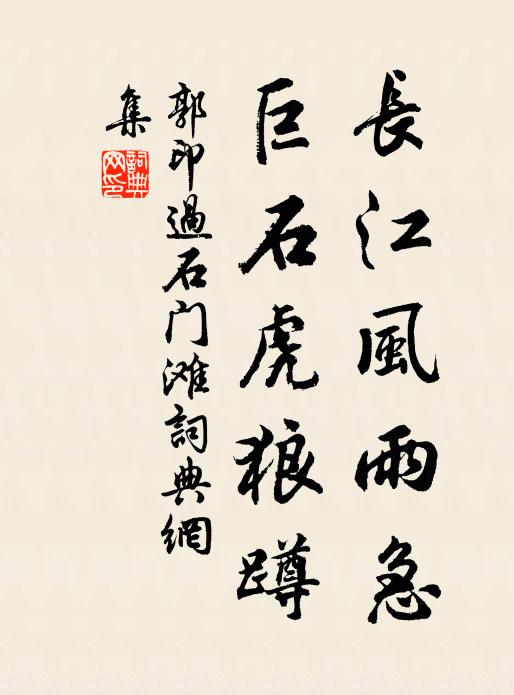 長江風雨急
巨石虎狼蹲
郭印過石门滩詞典網
集
詞典網印